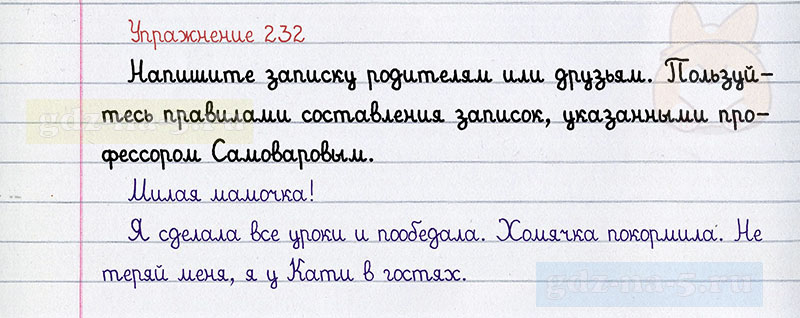 Упражнение 232
Напишите записку родителям или друзьям. Пользуй-
тесь правилами составления записок, указанными про-
фессором Самоваровым.
Милая мамочка!
Я сделала все уроки и пообедала. Хомячка покормила. Не
теряй меня, я у Кати в гостях.
gdz-na-5.ru